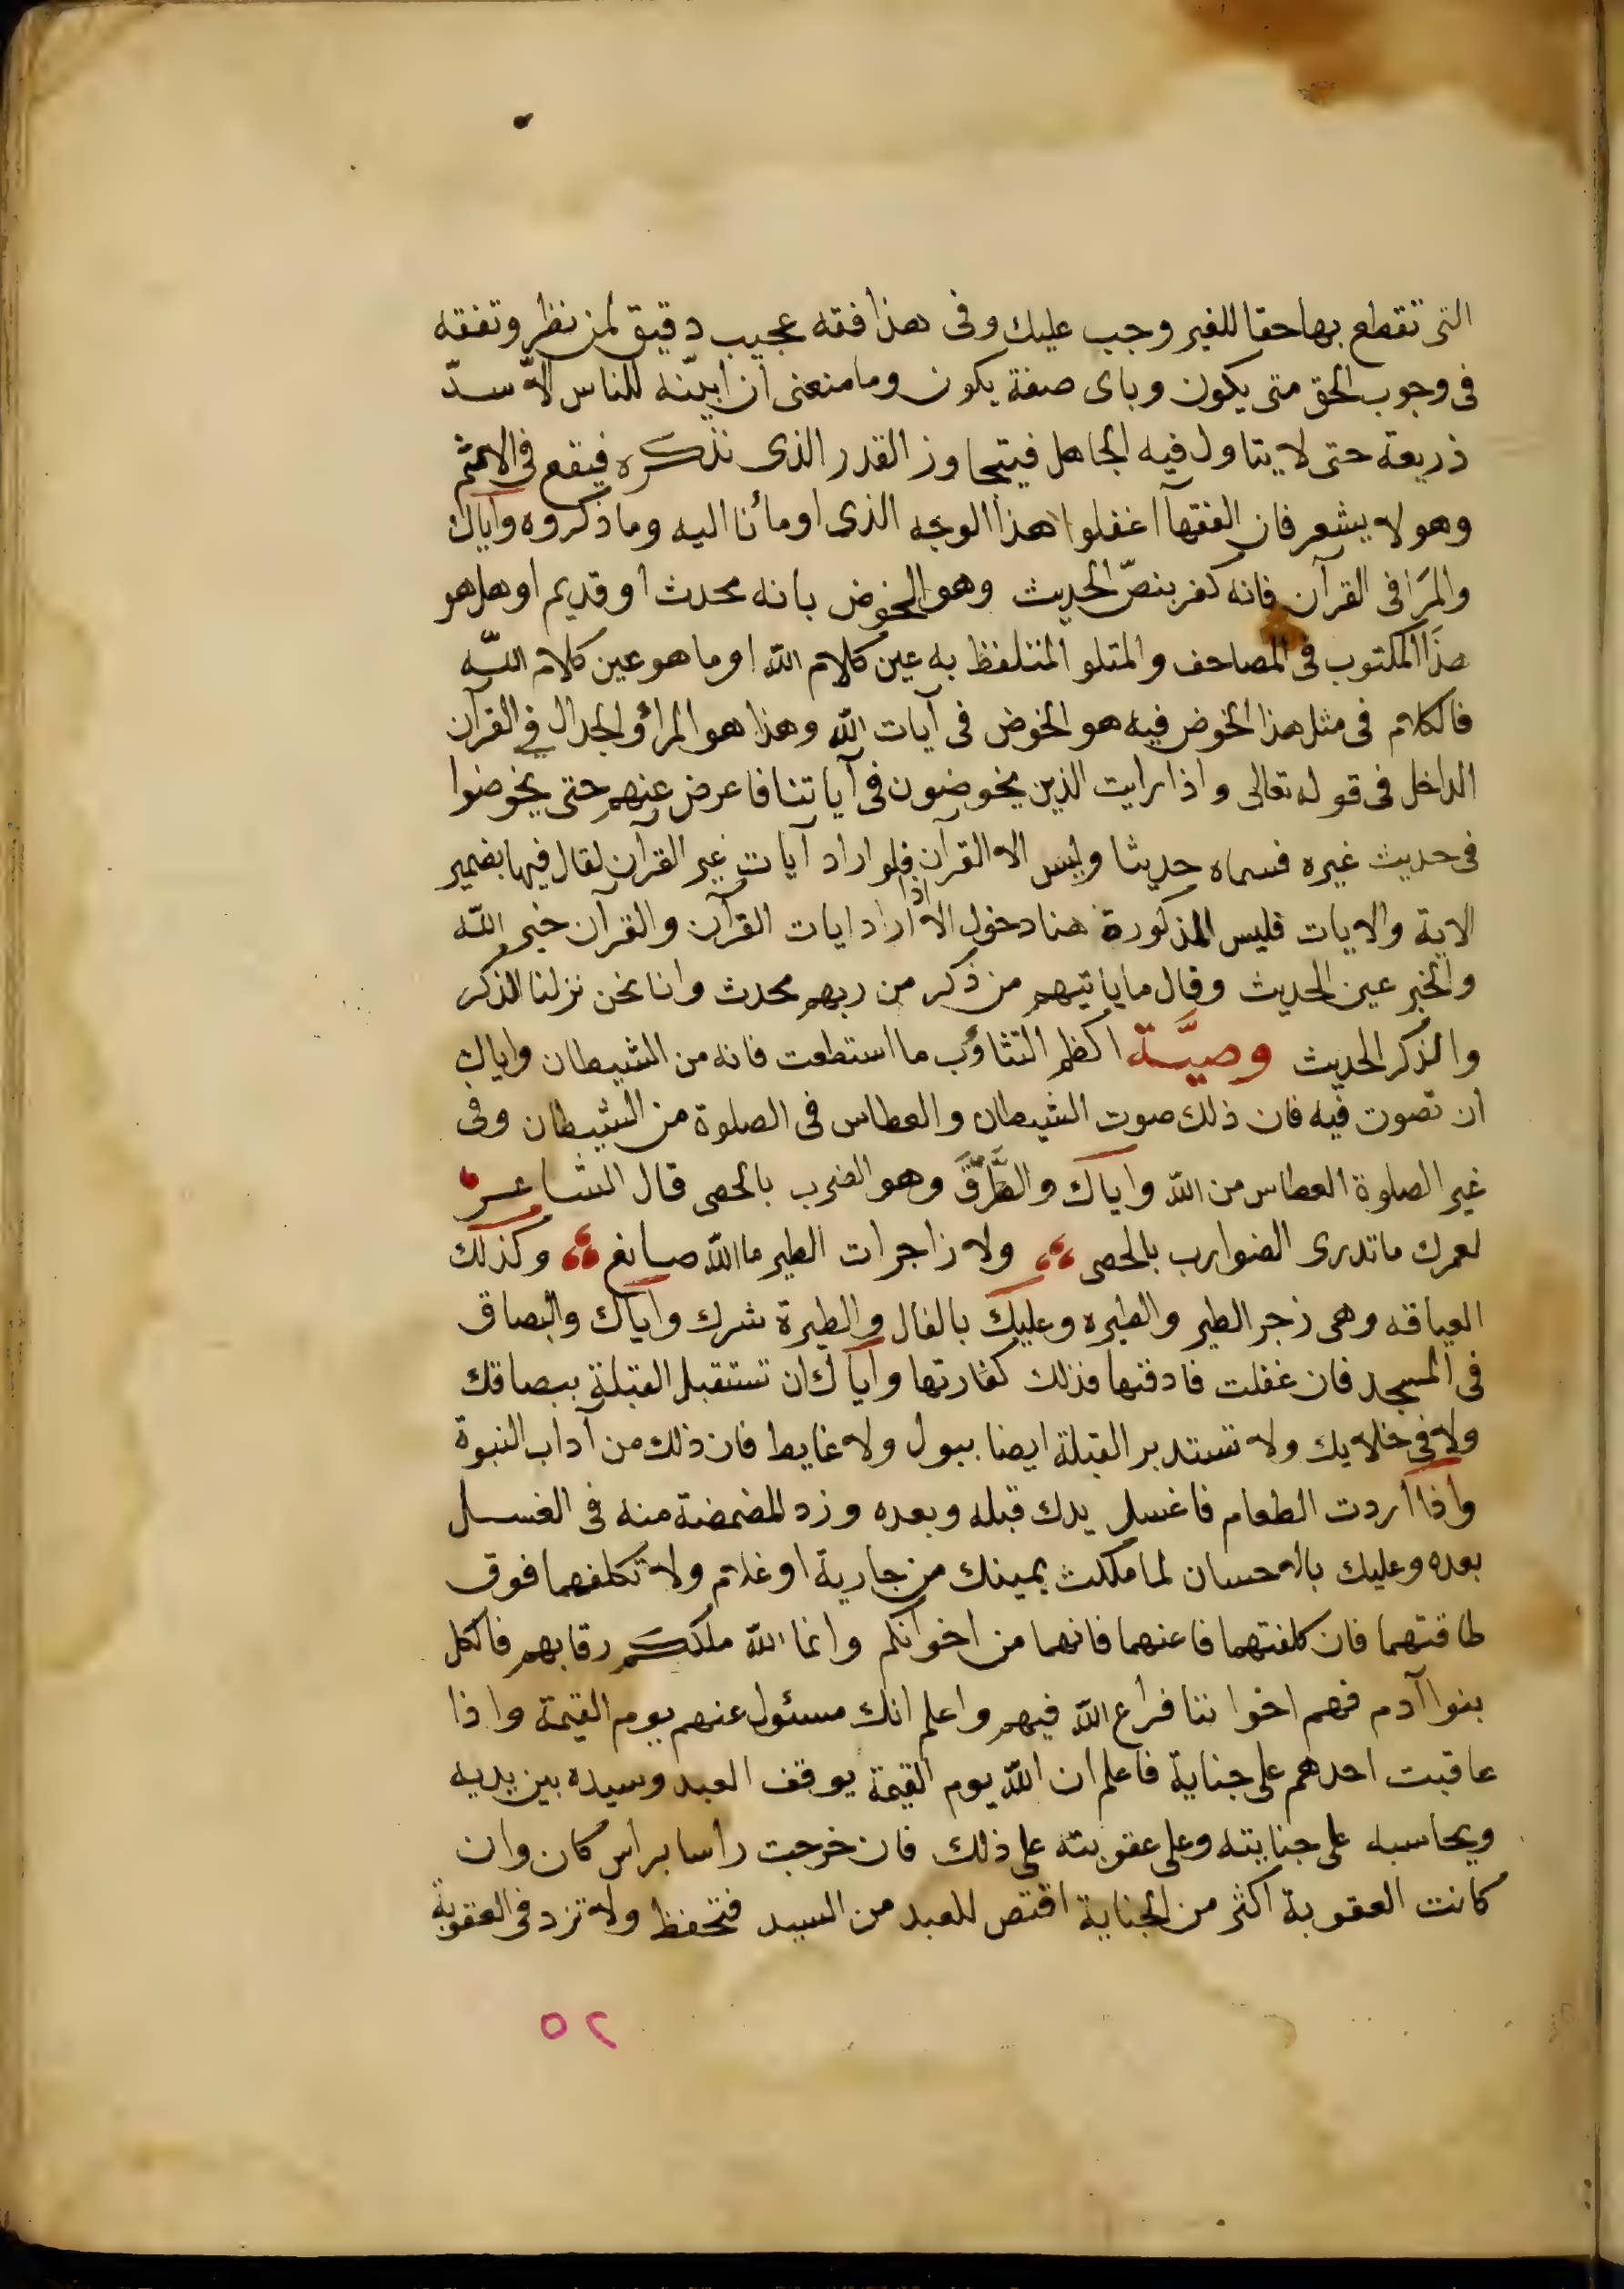 التى تقطع بها حقا للغير وجب عليك وفى هذا فقه عجيب دقيق لمن نظر وتفقه
فى وجوب الحق متى يكون وباى صفة يكون وما منعنى ان ابيّنه للناس الّا سدّ
ذريعة حتى لا يتاول فيه الجاهل فيتجاوز القدر الذى نذكره فيقع فى الاثم
وهو لا يشعر فان الفقهآ اغفلوا هذا الوجه الذى اومأنا اليه وما ذكروه واياك
والمرَا فى القرآن فانه كفر بنصّ الحديث وهو الخوض بانه محدث او قديم او هل هو
هذَا المكتوب فى المصاحف والمتلو المتلفظ به عين كلام الله او ما هو عين كلام اللّه
فالكلام فى مثل هذا الخوض فيه هو الخوض فى آيات الله وهذا هو المرأ والجدال فى القرآن
الداخل فى قوله تعالى واذا رايت الذين يخوضون فى آياتنا فاعرض عنهم حتى يخوضوا
فى حديث غيره فسماه حديثا وليس الا القرآن فلو اراد آيات غير القرآن لقال فيها بضمير
الاية والايات فليس للذكورة هنا دخول الا اذا اراد ايات القرآن والقرآن خبر اللّه
والخبر عين الحديث وقال ما ياتيهم من ذكر من ربهم محدث وانا نحن نزلنا الذكر
والذكر الحديث وصيَّة اكظم التثاؤب ما استطعت فانه من الشيطان واياك
ان تصوت فيه فان ذلك صوت الشيطان والعطاس فى الصلوة من الشيطان وفى
غير الصلوة العطاس من الله واياك والطَّرْقَ وهو الضرب بالحصى قال الشاعر
لعمرك ما تدرى الضوارب بالحصى ولا زاجرات الطير ما اللّه صانع وكذلك
العيافه وهى زجر الطير والطيره وعليك بالفال والطيرة شرك واياك والبصاق
فى المسجد فان غفلت فادفنها فذلك كفارتها واياك ان تستقبل القبلة ببصاقك
ولا فى خلايك ولا تستدبر القبلة ايضا ببول ولا غايط فان ذلك من آداب النبوة
واذا اردت الطعام فاغسل يدك قبله وبعده وزد المضمضة منه فى الغسل
بعده وعليك بالاحسان لما ملكت يمينك من جارية او غلام ولا تكلفهما فوق
طاقتهما فان كلفتهما فاعنهما فانهما من اخوانكم وانما الله ملككم رقابهم فالكل
بنوا آدم فهم اخواننا فراع اللّه فيهم واعلم انك مسئول عنهم يوم القيمة واذا
عاقبت احدهم على جناية فاعلم ان اللّه يوم القيمة يوقف العبد وسيده بين يديه
ويحاسبه على جنايته وعلى عقوبته على ذلك فان خرجت راسا براس كان وان
كانت العقوبة اكثر من الجناية اقتص للعبد من السيد فتحفظ ولا تزد فى العقوبة
٥٢